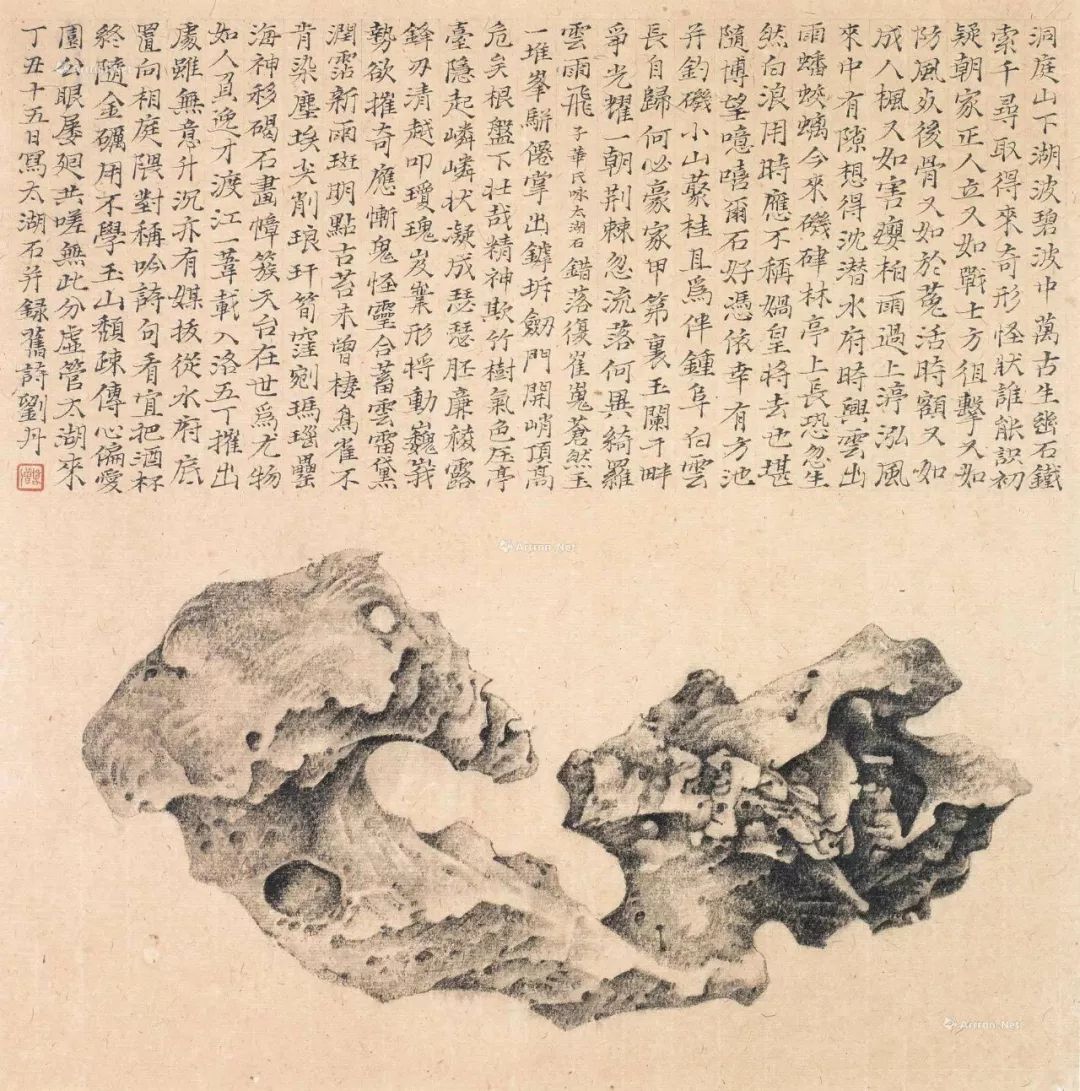 洞庭山下湖波碧波中萬古生幽石鐵
索千尋取得來奇形怪狀誰能識初
疑朝家正人立又如戰士方狙擊又如
防風死後骨又如於菟活時額又如
成人楓又如害癭柏雨過上渟泓風
來中有隙想得沈潜水府時興雲出
雨蟠蛟螭今來磯硉林亭上長恐忽生
然白浪用時應不稱媧皇將去也堪
隨博望噫嘻爾石好憑依幸有方池
并釣磯小山藂桂且爲伴鍾阜白雲
長自歸何必豪家甲第裏玉闌干畔
爭光耀一朝荆棘忽流落何異綺羅
雲雨飛 子華氏咏太湖石 錯落復崔嵬蒼然玉
一堆峯駢僊掌出罅坼劒門開峭頂高
危矣根盤下壮哉精神欺竹樹氣色压亭
臺隱起嶙嶙状凝成瑟瑟胚廉稜露
鋒刃清越叩瓊瑰岌嶪形將動巍峩
勢欲摧奇應慚鬼怪靈合蓄雲雷黛
潤霑新雨斑明點古苔未曾棲鳥雀不
肯染塵埃尖削琅玕笥窪剜瑪瑙罍
海神移碣石畫幛簇天台在世爲尤物
如人負迎才渡江一葦載入洛五丁摧出
處雖無意升沉亦有媒拔從水府底
置向相庭隈對稱吟詩句看宜把酒杯
終隨金礪用不學玉山頹疎傳心偏愛
園公眼屢廻共嗟無此分虛管太湖來
丁丑十五日寫太湖石并録舊詩劉丹
Artron.Net
Artron.Net